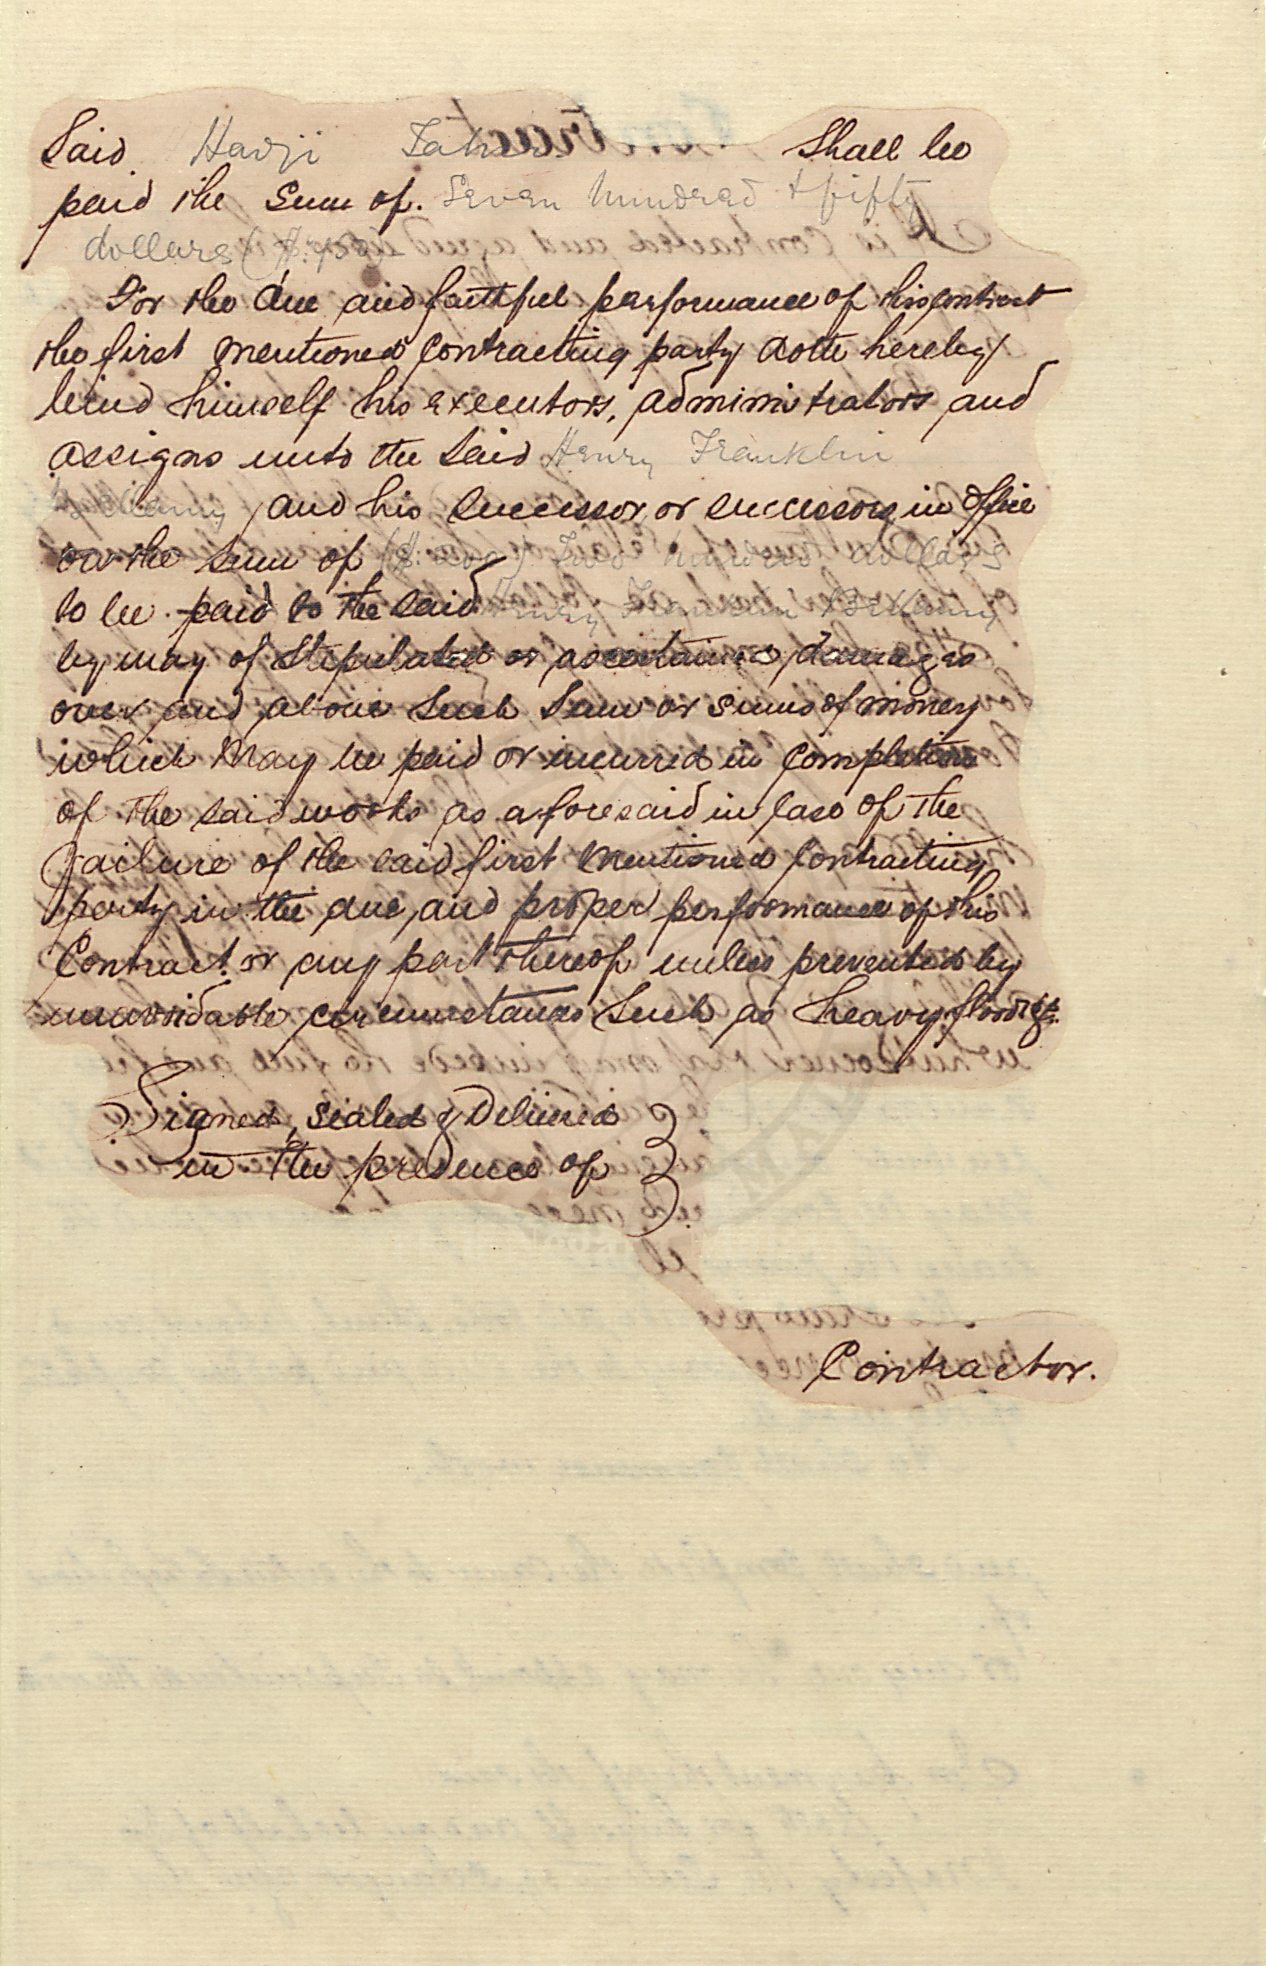 Said Hadji Taher Shall be
paid the Sum of. Seven hundred & fifty
dollars ($.750)
For the due and faithful performance of this contract
the first mentioned Contracting party doth hereby
bind himself his executors, administrators and
assigns unto the said Henry Franklin
Bellamy and his successor or successors in office
in the sum of ($.200) Two hundred dollars
to be paid to the said Henry Franklin Bellamy
by way of Stipulated or ascertained damages
over and above such Sum or sums of money
which may be paid or incurred in Completion
of the said works as aforesaid in case of the
failure of the said first mentioned Contracting
party in the due and proper performance of this
Contract or any part thereof unless prevented by
unavoidable circumstances such as heavy floods &c.
Signed, sealed & Delivered
in the presence of
Contractor.